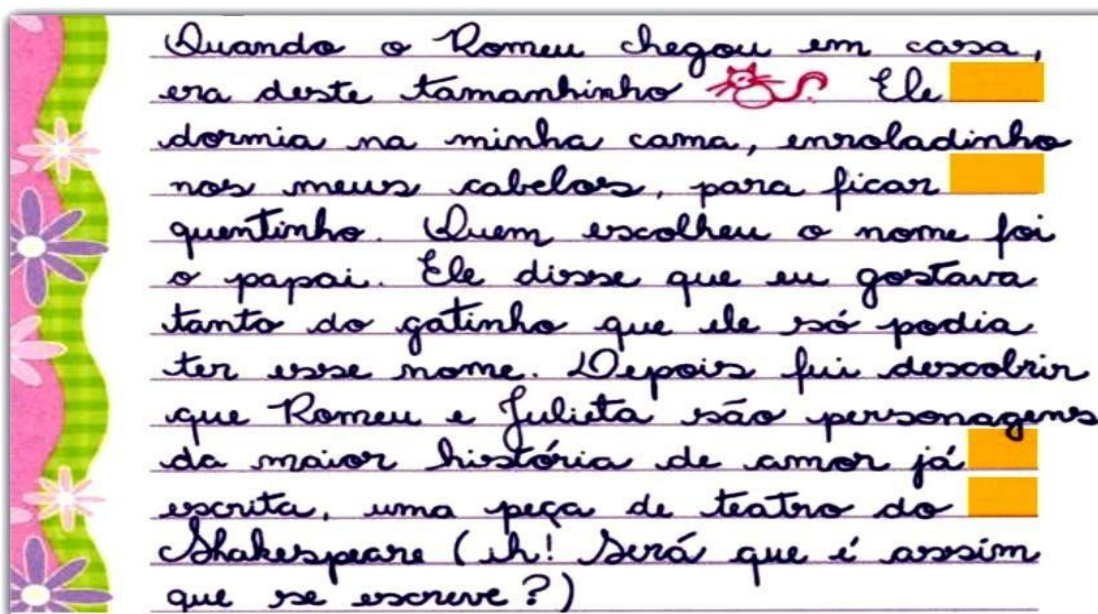 Quando o Romeu chegou em casa,
era deste tamanhinho Ele
dormia na minha cama, enroladinho
nos meus cabelos, para ficar
quentinho. Quem escolheu o nome foi
o papai. Ele disse que eu gostava
tanto do gatinho que ele só podia
ter esse nome. Depois fui descobrir
que Romeu e Julieta são personagens
da maior história de amor já
escrita, uma peça de teatro do
Shakespeare (ih! Será que é assim
que se escreve?)